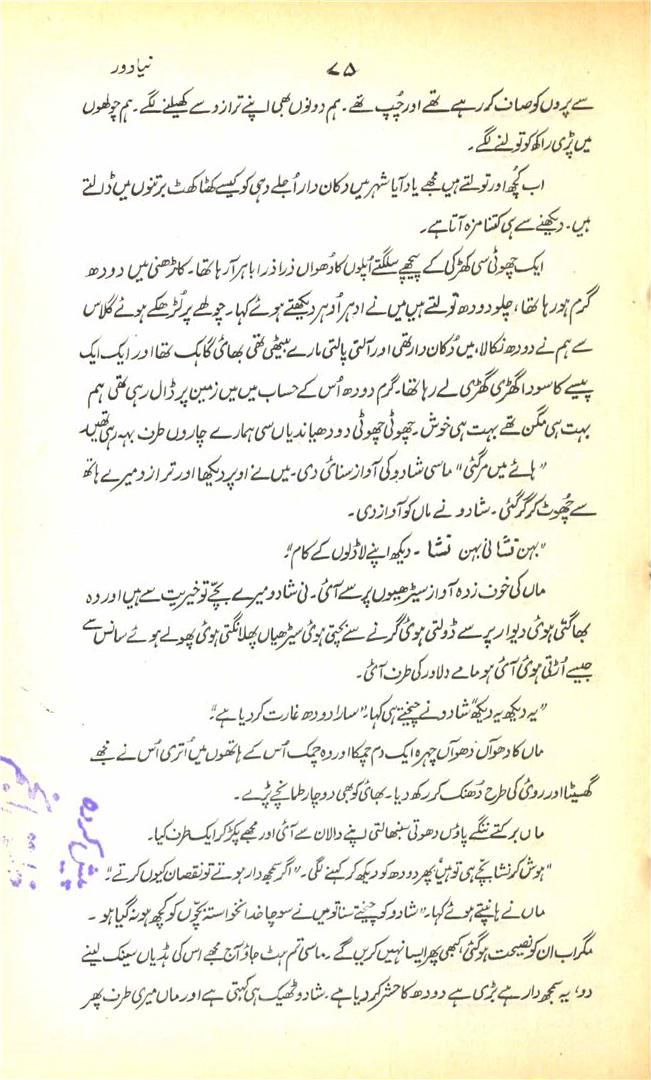 نیا دور
۷۵
سے پروں کو صاف کر رہے تھے اور چُپ تھے۔ ہم دونوں بھی اپنے ترازو سے کھیلنے لگے۔ ہم چولھوں
میں پڑی راکھ کو تولنے لگے۔
اب کچُھ اور تولتے ہیں مجھے یاد آیا شہر میں دکان دار اُجلے دہی کو کیسے کھٹا کھٹ برتنوں میں ڈالتے
ہیں۔ دیکھنے سے ہی کتنا مزہ آتا ہے۔
ایک چھوٹی سی کھڑکی کے پیچھے سلگتے اُپلوں کا دُھواں ذرا ذرا باہر آ رہا تھا۔ کاڑھنی میں دودھ
گرم ہو رہا تھا، چلو دودھ تولتے ہیں میں نے ادہر اُدہر دیکھتے ہوئے کہا۔ چولھے پر لُڑھکے ہوئے گلاس
سے ہم نے دودھ نکالا، میں دُکان دار تھی اور آلتی پالتی مارے بیٹھی تھی بھائی گاہک تھا اور ایک ایک
پیسے کا سودا گھڑی گھڑی لے رہا تھا۔ گرم دودھ اُس کے حساب میں میں زمین پر ڈال رہی تھی ہم
بہت ہی مگن تھے بہت ہی خوش۔ چھوٹی چھوٹی دودھیا ندیاں سی ہمارے چاروں طرف بہہ رہی تھیں۔
"ہائے میں مر گئی" ماسی شادو کی آواز سنائی دی۔ میں نے اوپر دیکھا اور ترازو میرے ہاتھ
سے چُھوٹ کر گر گئی۔ شادو نے ماں کو آواز دی۔
"بہن نشا نی بہن نشا۔ دیکھ اپنے لاڈلوں کے کام"۔
ماں کی خوف زدہ آواز سیڑھیوں پر سے آئی۔ نی شادو میرے بچے تو خیریت سے ہیں اور وہ
بھاگتی ہوئی دیوار پر سے ڈولتی ہوئی گرنے سے بچتی ہوئی سیڑھیاں پھلانگتی ہوئی پھولے ہوئے سانس سے
جیسے اُڑتی ہوئی آئی ہو مامے دلاور کی طرف آئی۔
"یہ دیکھ یہ دیکھ" شادو نے چیختے ہی کہا۔ "سارا دودھ غارت کر دیا ہے"۔
ماں کا دھواں دھواں چہرہ ایک دم چمکا اور وہ چمک اُس کے ہاتھوں میں اُتری اُس نے مجھے
گھسیٹا اور روئی کی طرح دُھنک کر رکھ دیا۔ بھائی کو بھی دو چار طمانچے پڑے۔
ماں برکتے ننگے پاؤں دھوتی سنبھالتی اپنے دالان سے آئی اور مجھے پکڑ کر ایک طرف کیا۔
"ہوش کر نشا بچے ہی تو ہیں" پھر دودھ کو دیکھ کر کہنے لگی۔ "اگر سمجھ دار ہوتے تو نقصان کیوں کرتے"۔
ماں نے ہانپتے ہوئے کہا۔ "شادو کو چیختے سنا تو میں نے سوچا خدانخواستہ بچّوں کو کچھ ہو نہ گیا ہو۔
مگر اب ان کو نصیحت ہو گئی کبھی پھر ایسا نہیں کریں گے۔ ماسی تم ہٹ جاؤ آج مجھے اس کی ہڈیاں سینک لینے
دو، یہ سمجھ دار ہے بڑی ہے دودھ کا حشر کر دیا ہے۔ شادو ٹھیک ہی کہتی ہے اور ماں میری طرف پھر
پیش کردہ